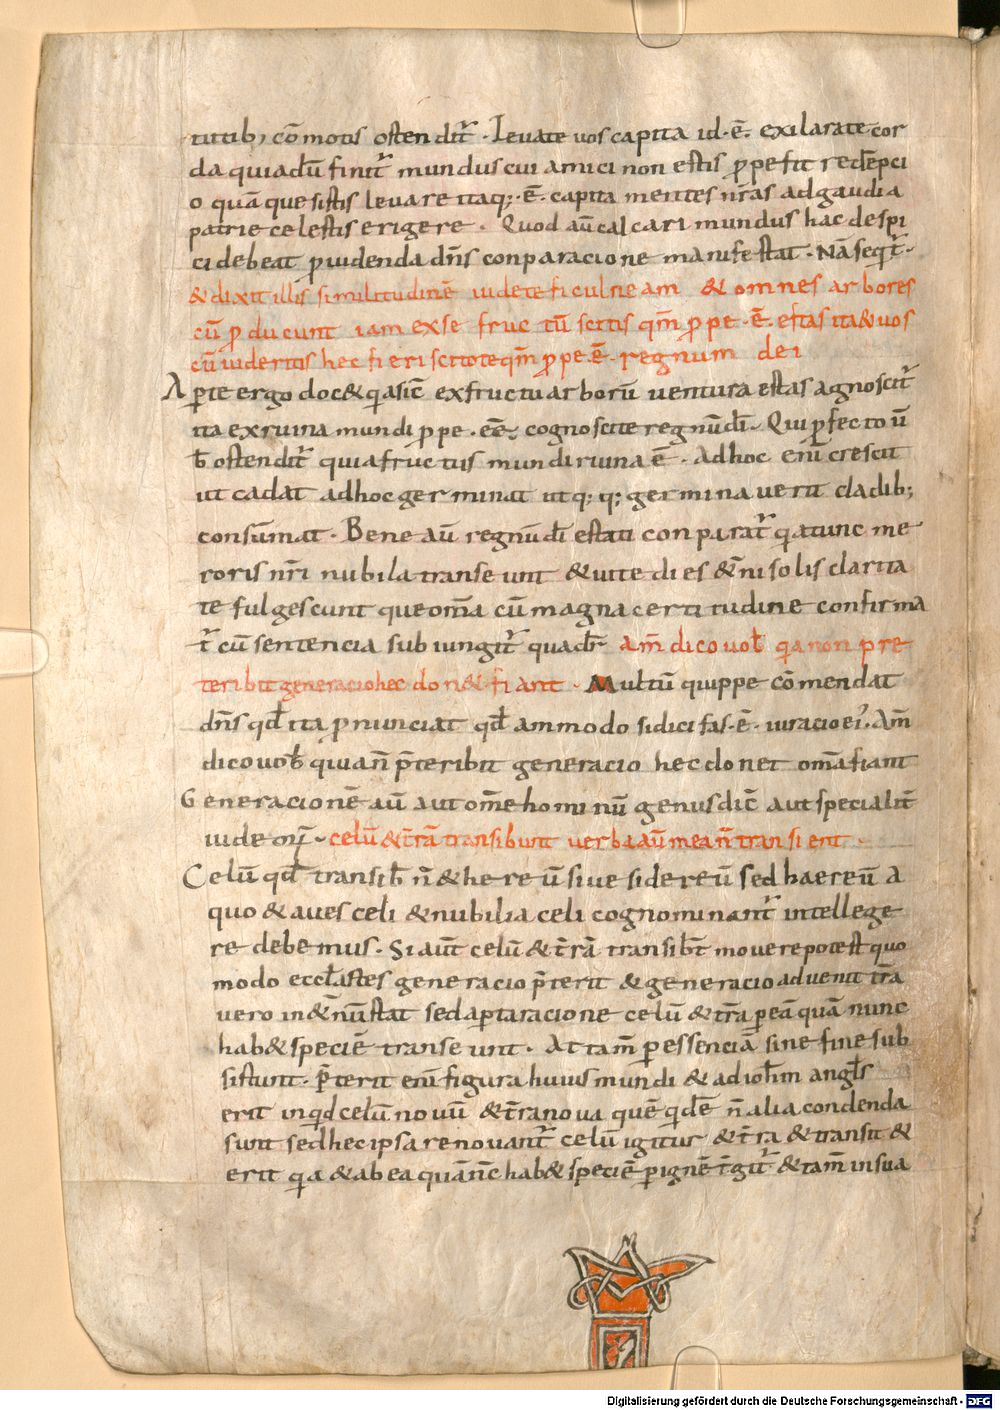 tutib; cōmotis ostendit̄ · Levate vos capita id · ē · exilarate cor
da quia dū finit̄ mundus cui amici non estis p̱pe fit redēpci
o quā quesistis levare itaq; · ē · capita mentes n̄ras ad gaudia
patrie celestis erigere · Quod aū calcari mundus hac despi
ci debeat p̱videnda dn̄s conparacione manifestat · Nā seqt̄ ·
& dixit illis similitudinē videte ficulneam & omnes arbores
cū p̱ducunt iam ex se fructū scitis qm̄ p̱pe · ē · estas ita & vos
cū videritis hec fieri scitote qm̄ p̱pe · ē · regnum dei
Ap̱te ergo doc& qa sic̄ ex fructu arborū ventura estas agnoscit̄
ita ex ruina mundi p̱pe · eē · cognoscite regnū dī · Qui p̱fecto ū
b̄ ostendit̄ quia fructus mundi ruina ē · Ad hoc enī crescit
ut cadat ad hoc germinat ut q; q; germinaverit cladib;
consūmat · Bene aū regnū dī estati conparat̄ qa tunc me
roris n̄ri nubila transeunt & vite dies &n̄i solis clarita
te fulgescunt que om̄a cū magna certitudine confirma
t̄ cū sentencia subiungit̄ qua dr̄ am̄ dico vob̄ qa non pre
teribit generacio hec don& fiant · Multū quippe cōmendat
dn̄s qd̄ ita p̱nunciat qd̄ ammodo si dici fas · ē · iuracio ei' · Am̄
dico vob̄ quia n̄ p̄teribit generacio hec donet om̄a fiant
Generacionē aū aut om̄e hominū genus dic̄ aut specialit̄
iudeorꝝ · celū & t̄rā transibunt verba aū mea n̄ transient ·
Celū qd̄ transib̄ n̄ & hereū sive sidereū sed haereū a
quo & aves celi & nubilia celi cognominant̄ intellege
re debemus · Si aūt celū & t̄rā transib̄t movere potest quo
modo eccl̄astes generacio p̄terit & generacio advenit t̄ra
vero in &n̄ū stat sed ap̱ta racione celū & t̄ra p̱ eā quā nunc
hab& speciē transeunt · At tam̄ p̱ essenciā sine fine sub
sistunt · p̄terit enī figura huius mundi & ad ioh̄m angl̄s
erit inqd celū novū & t̄ra nova quē qdē n̄ alia condenda
sunt sed hec ipsa renovant̄ celū igitur & t̄ra & transit &
erit qa & ab ea quā nc̄ hab& speciē p̱ ignē t̄git̄ & tam̄ in sua
Digitalisierung gefördert durch die Deutsche Forschungsgemeinschaft - DFG